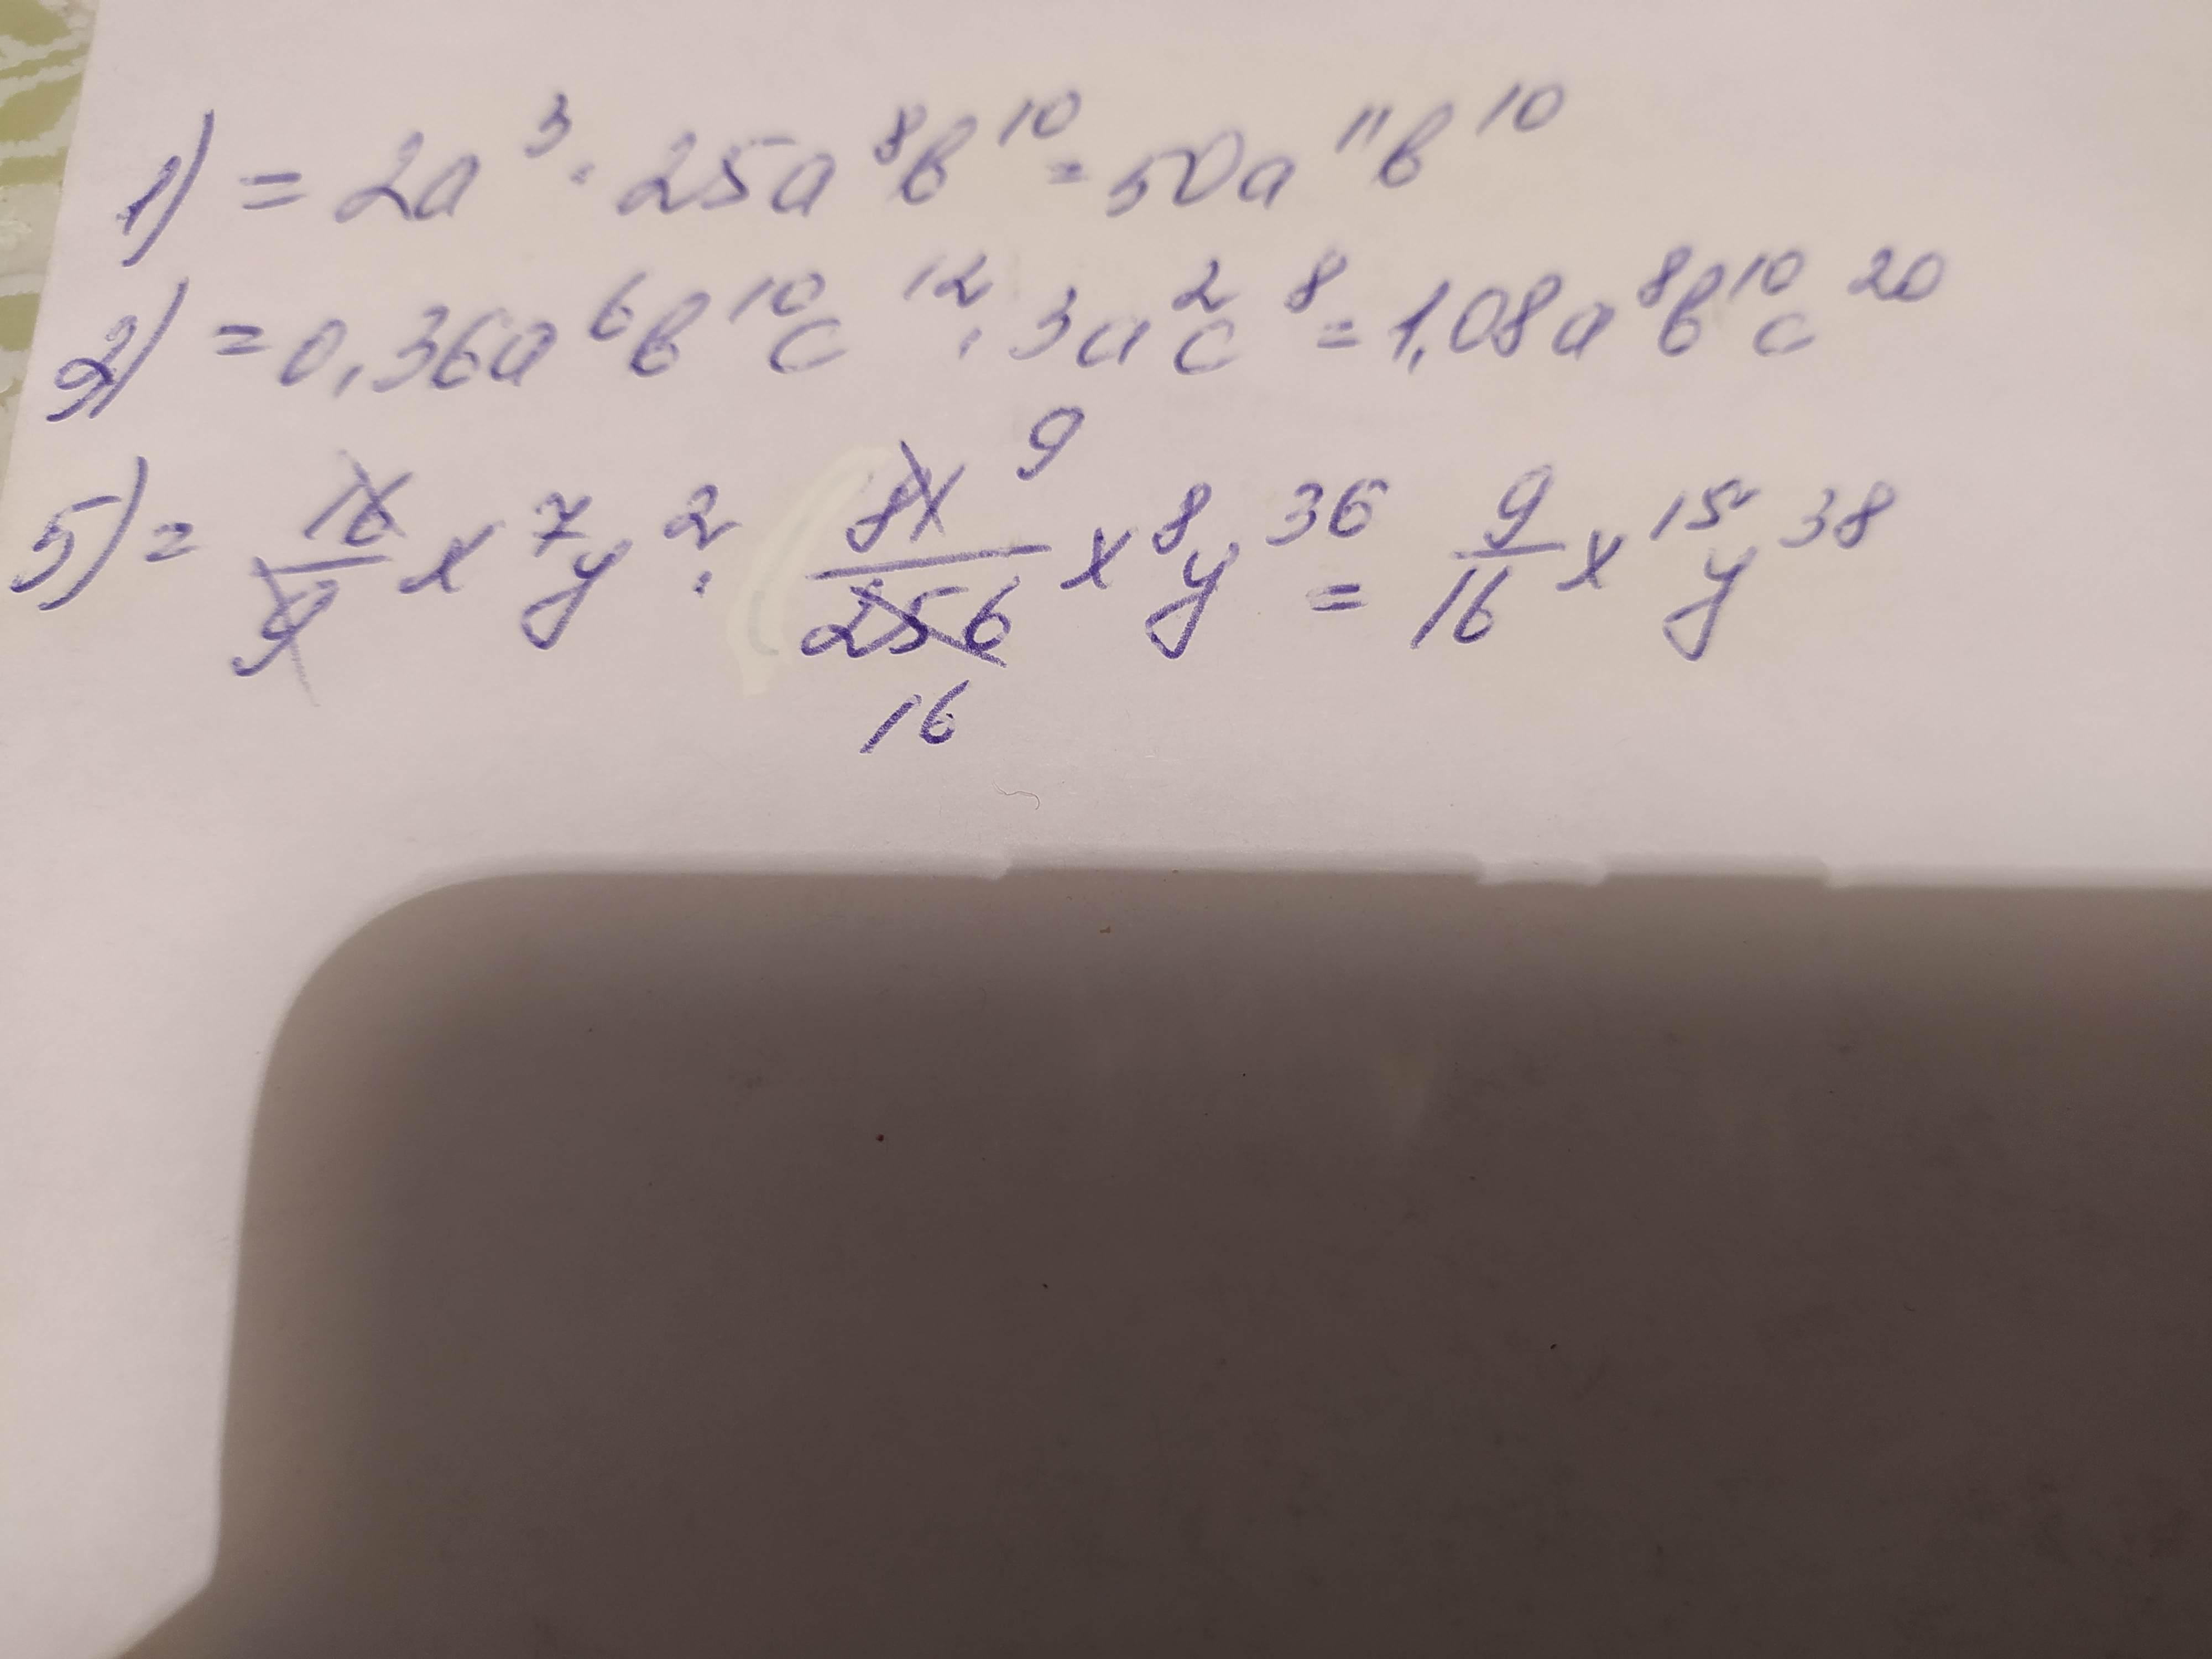 1) = 2a³ · 25a⁸b¹⁰ = 50a¹¹b¹⁰
2) = 0,36a⁶b¹⁰c¹² · 3a²c⁸ = 1,08a⁸b¹⁰c²⁰
5) = 16/9 x⁷y² · 81/256 9/16 x⁸y³⁶ = 9/16 x¹⁵y³⁸